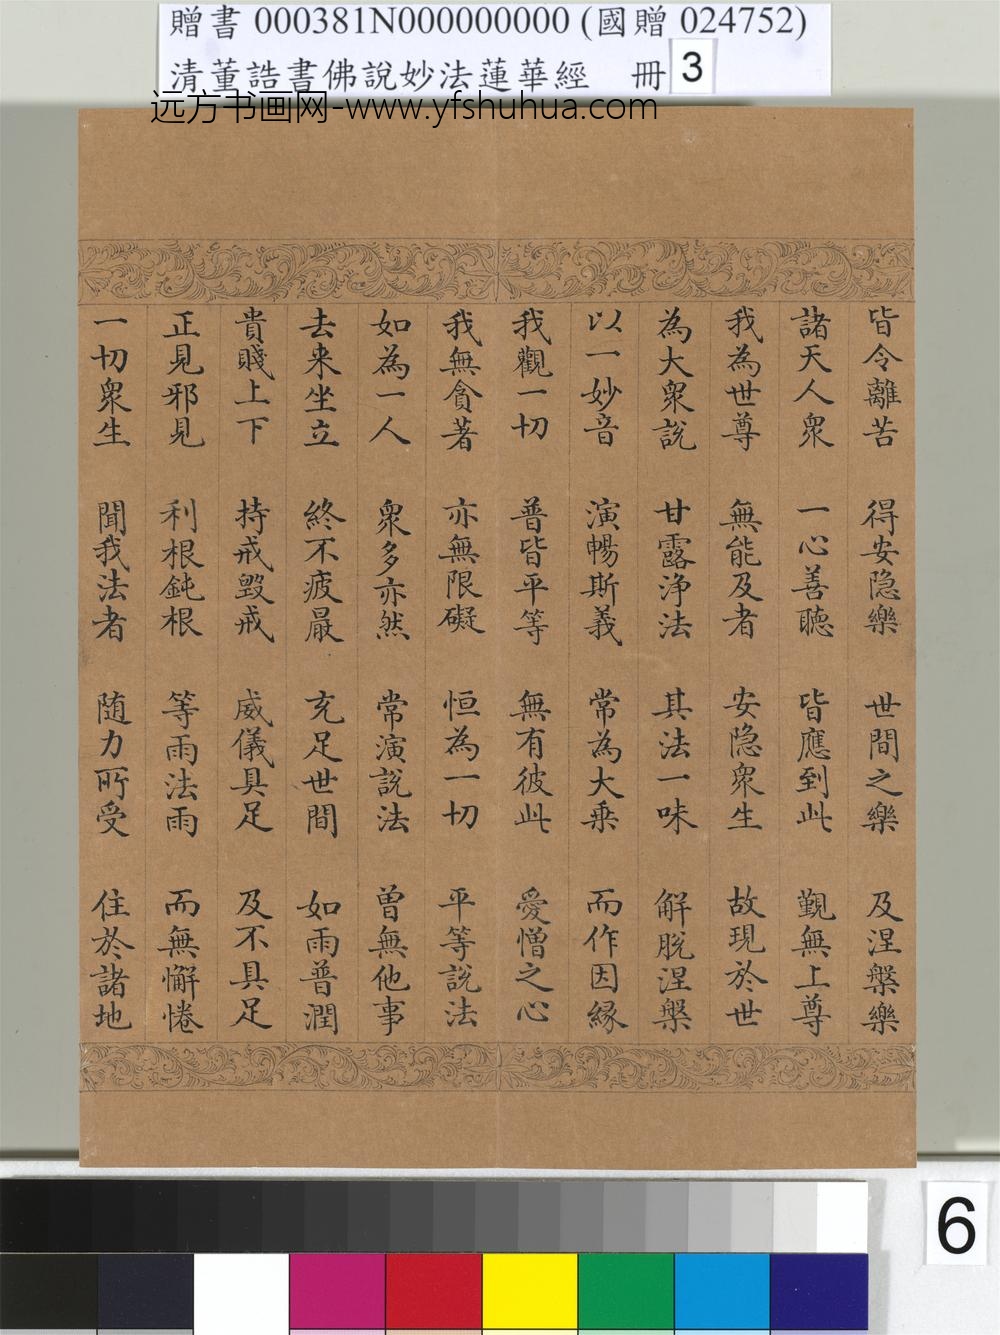 贈書 000381N000000000 (國贈 024752)
清董誥書佛說妙法蓮華經 冊 3
远方书画网-www.yfshuhua.com
皆令離苦 得安隐樂 世間之樂 及涅槃樂
諸天人衆 一心善聽 皆應到此 覲無上尊
我為世尊 無能及者 安隐衆生 故現於世
為大衆說 甘露浄法 其法一味 解脫涅槃
以一妙音 演暢斯義 常為大乗 而作因緣
我觀一切 普皆平等 無有彼此 愛憎之心
我無貪著 亦無限礙 恒為一切 平等說法
如為一人 衆多亦然 常演說法 曽無他事
去来坐立 終不疲厭 充足世間 如雨普潤
貴賤上下 持戒毀戒 威儀具足 及不具足
正見邪見 利根鈍根 等雨法雨 而無懈惓
一切衆生 聞我法者 随力所受 住於諸地
6